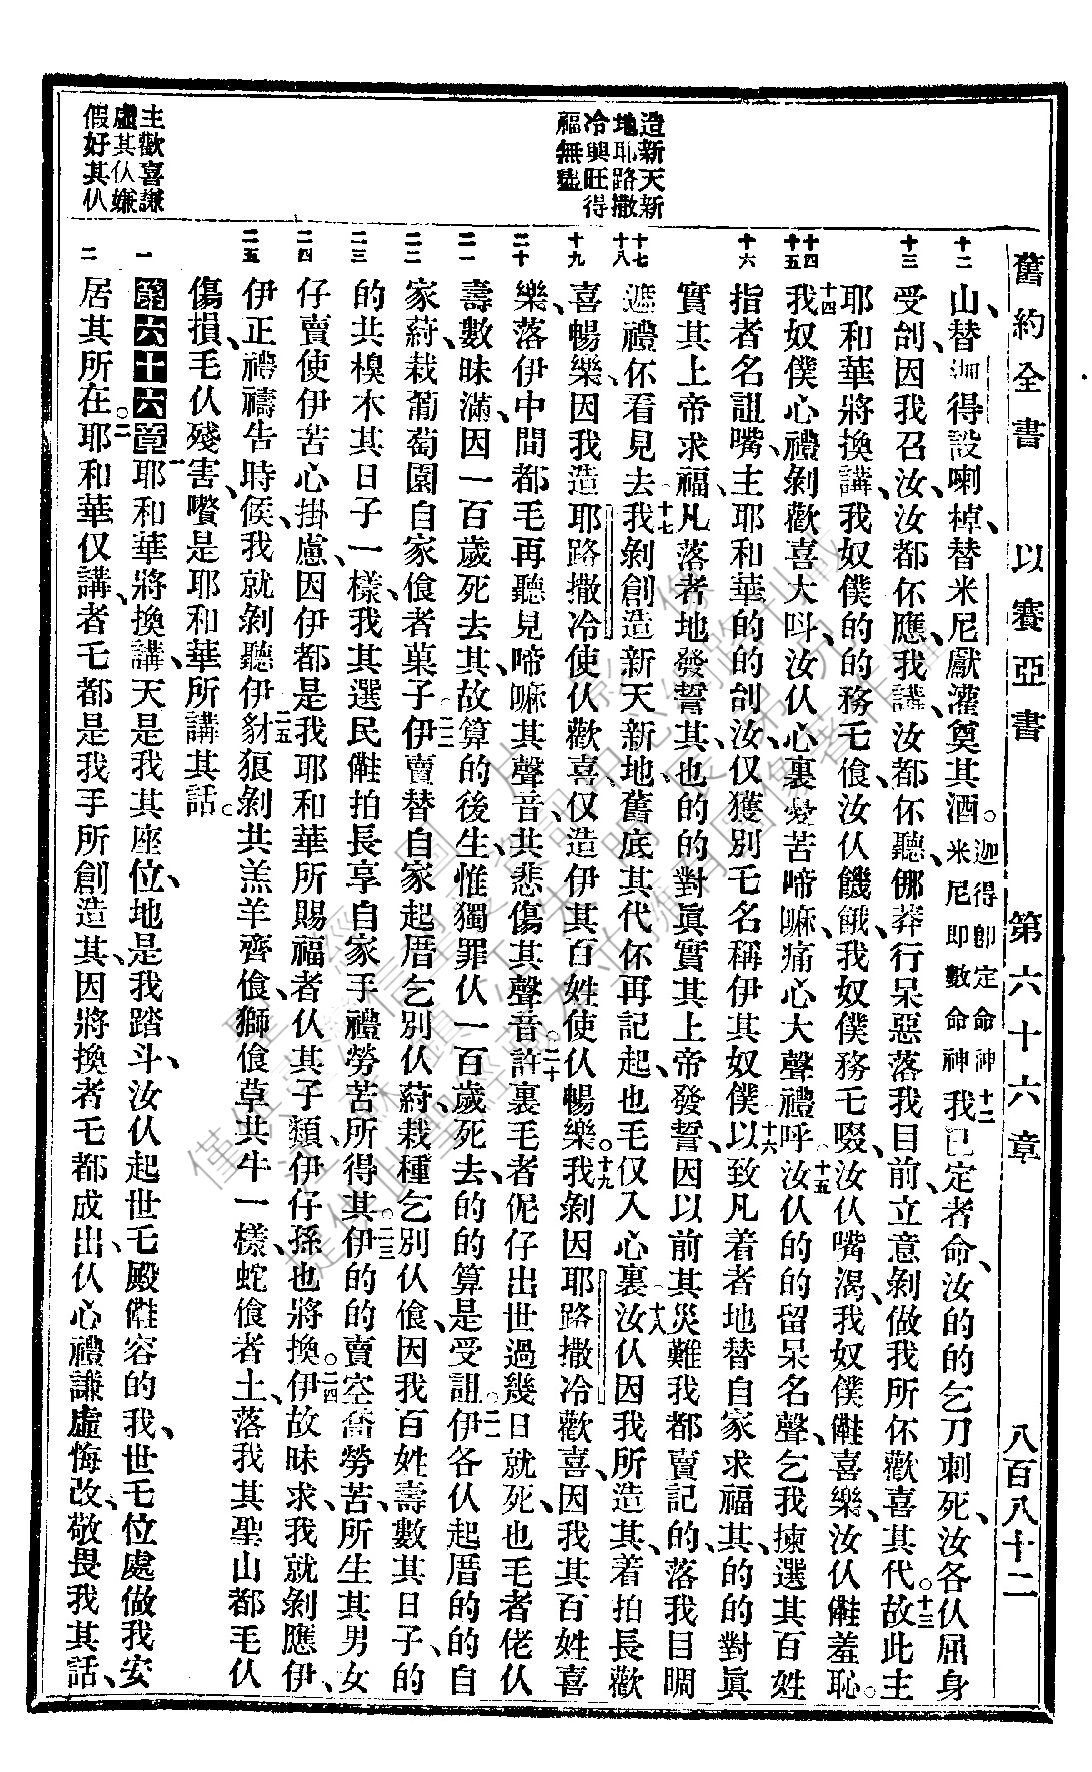 舊約全書　以賽亞書　第六十六章　八百八十二
造新天新
地耶路撒
冷興旺得
福無盡
主歡喜謙
虛其仈嫌
假好其仈
十二
山、替迦得設喇棹、替米尼厭灌奠其酒。迦得卽定命神米尼即數命神十二我已定者命、汝的的乞刀刺死、汝各仈屈身
十三
受刣、因我召汝、汝都伓應、我講、汝都伓聽、㑚莽行呆惡落我目前、立意剝做我所伓歡喜其代。十三故此主
耶和華將換講、我奴僕的的務乇飡、汝仈饑餓、我奴僕務乇啜、汝仈嘴渴、我奴僕㒰喜樂、汝仈㒰羞恥。
十四 十五
十四我奴僕心禮剝歡喜大呌、汝仈心裏憂苦啼嘛、痛心大聲禮呼。十五汝仈的的留呆名聲、乞我揀選其百姓
十六
指者名詛嘴、主耶和華的的刣汝、仅獲別乇名稱伊其奴僕。十六以致凡着者地替自家求福其、的的對眞
實其上帝求福、凡落者地發誓其、也的的對眞實其上帝發誓、因以前其災難我都賣記的、落我目睭
十七 十八
遮禮伓看見去。十七我剝創造新天新地、舊底其代伓再記起、也毛仅入心裏。十八汝仈因我所造其、着拍長歡
十九
喜暢樂、因我造耶路撒冷使仈歡喜、仅造伊其百姓使仈暢樂。十九我剝因耶路撒冷歡喜、因我其百姓喜
二十
樂、落伊中間都毛再聽見啼嘛其聲音、共悲傷其聲音。二十許裏毛者伲仔出世過幾日就死、也毛者佬仈
二一
壽數昧滿、因一百歲死去其、故算的後生、惟獨罪仈一百歲死去的的算是受詛。二一伊各仈起厝的的自
二二
家蒔、栽葡萄園自家飡者菓子。二二伊賣替自家起厝乞別仈蒔、栽種乞別仈飡、因我百姓壽數其日子、的
二三
的共槻木其日子一樣、我其選民㒰拍長享自家手禮勞苦所得其。二三伊的的賣空喬勞苦、所生其男女
二四
仔賣使伊苦心掛慮、因伊都是我耶和華所賜福者仈其子類、伊仔孫也將換。二四伊故昧求、我就剝應伊、
二五
伊正禮禱告時候、我就剝聽伊。二五豺狼剝共羔羊齊飡、獅飡草共牛一樣、蛇飡者土、落我其聖山都毛仈
傷損、毛仈殘害、嚽是耶和華所講其話。
一
第六十六章一耶和華將換講、天是我其座位、地是我踏斗、汝仈起世乇殿㒰容的我、世乇位處做我安
二
居其所在。二耶和華仅講、者乇都是我手所創造其、因將換者乇都成出、仈心禮謙虛悔改、敬畏我其話、